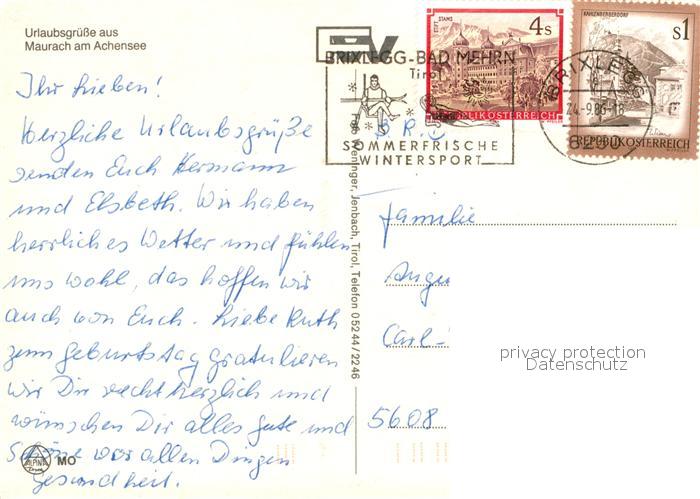 Urlaubsgrüße aus
Maurach am Achensee
Ihr Lieben!
Herzliche Urlaubsgrüße
senden Euch Hermann
und Elsbeth. Wir haben
herrliches Wetter und fühlen
uns wohl, das hoffen wir
auch von Euch. Liebe Ruth
zum Geburtstag gratulieren
wir Dir recht herzlich und
wünschen Dir alles gute und
Schöne vor allen Dingen
Gesundheit.
MO
Jenbach, Tirol, Telefon 05244/2246
BRIXLEGG-BAD MEHRN
Tirol
SOMMERFRISCHE
WINTERSPORT
STIFT STAMS
4s
REPUBLIK ÖSTERREICH
KAHLENBERGERDORF
S1
REPUBLIK ÖSTERREICH
BRIXLEGG
24.-9.86-18
6230
B.R.D
Familie
Carl-
5608
privacy protection
Datenschutz